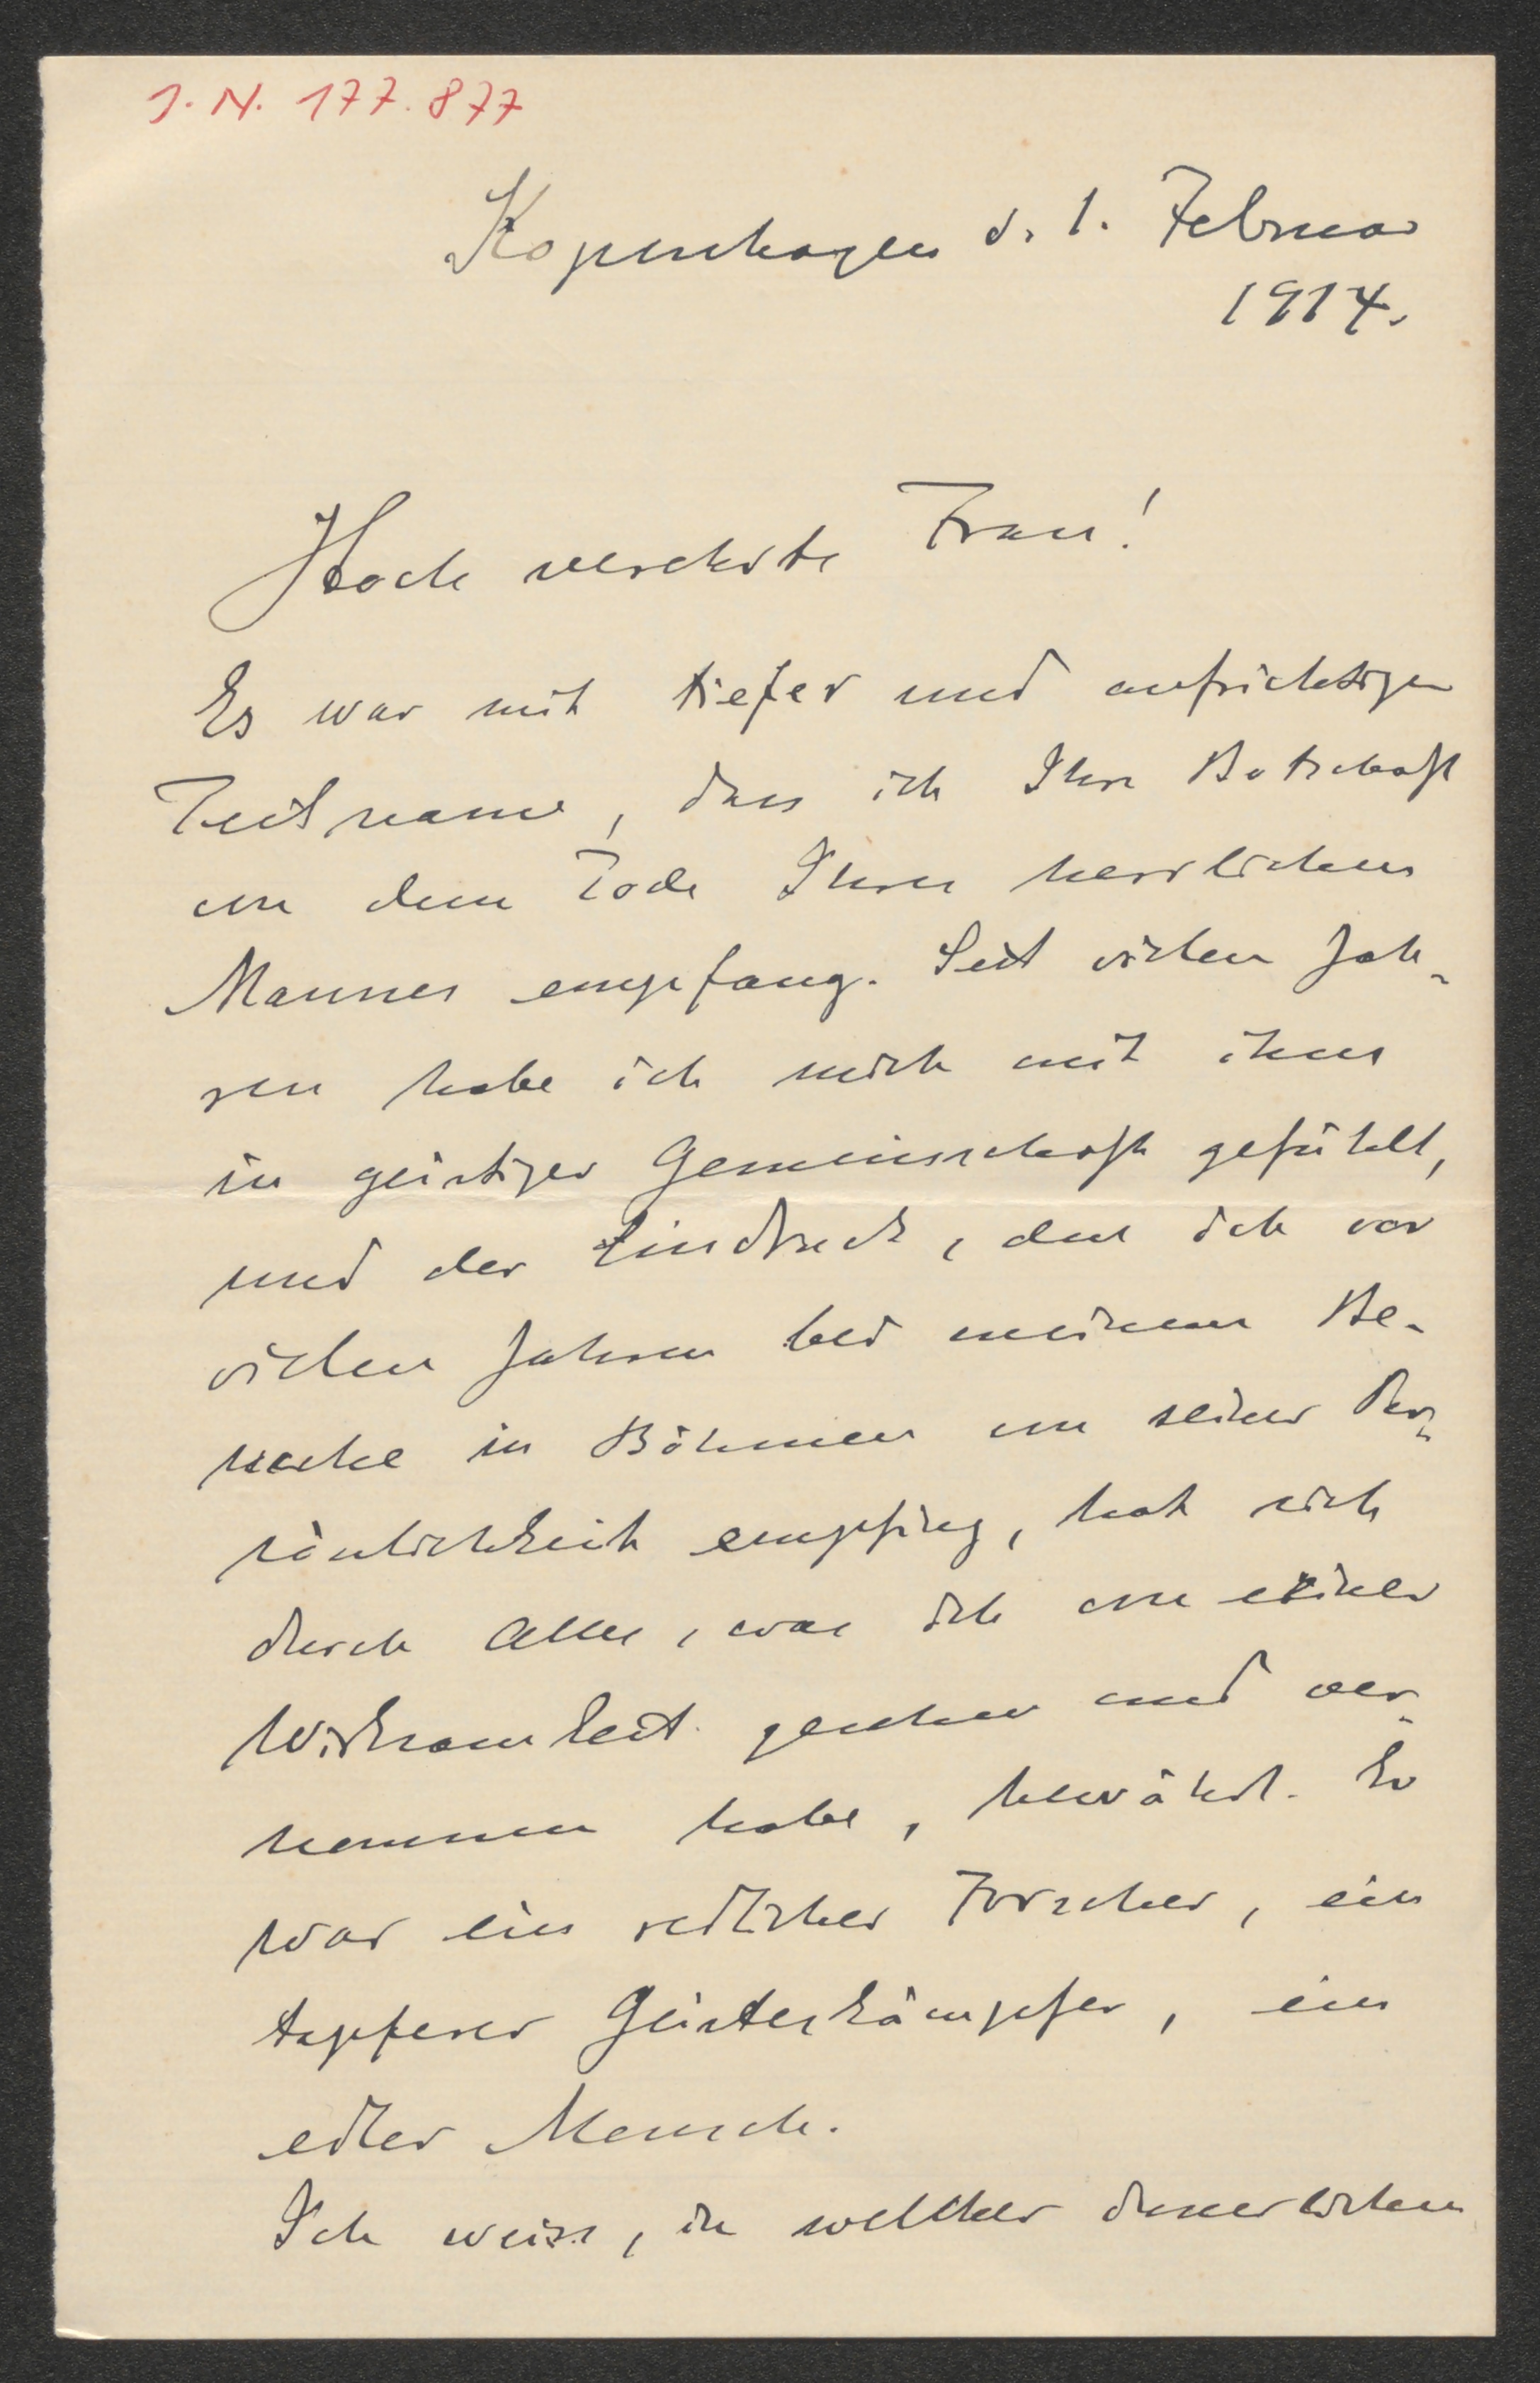 J. N. 177.877
Kopenhagen d. 1. Februar
1914.
Hoch verehrte Frau!
Es war mit tiefer und aufrichtiger
Teilname, dass ich Ihre Botschaft
von dem Tode Ihres herrlichen
Mannes empfang. Seit vielen Jah-
ren habe ich mich mit ihm
in geistiger Gemeinschaft gefühlt,
und der Eindruck, den ich vor
vielen Jahren bei meinem Be-
suche in Böhmen von seiner Per-
sönlichkeit empfing, hat sich
durch Alles, was ich von seiner
Wirksamkeit gesehen und ver-
nommen habe, bewährt. Er
war ein redlicher Forscher, ein
tapferer Geisteskämpfer, ein
edler Mensch.
Ich weiss, in welcher innerlichen